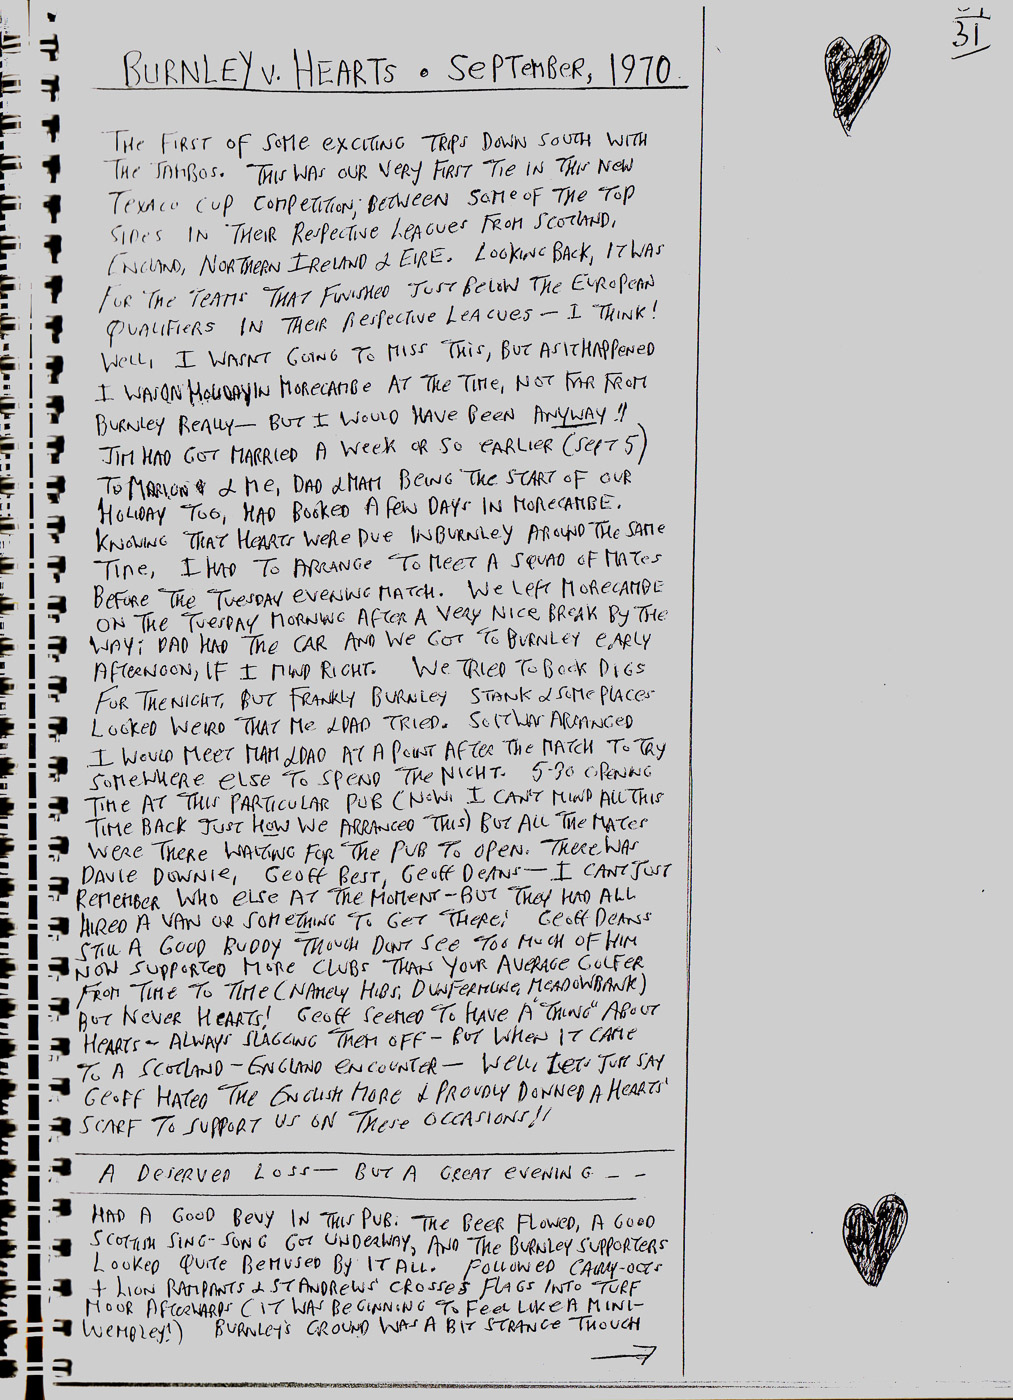 31
BURNLEY v. HEARTS • SEPTEMBER, 1970.
THE FIRST OF SOME EXCITING TRIPS DOWN SOUTH WITH
THE JAMBOS. THIS WAS OUR VERY FIRST TIE IN THIS NEW
TEXACO CUP COMPETITION, BETWEEN SOME OF THE TOP
SIDES IN THEIR RESPECTIVE LEAGUES FROM SCOTLAND,
ENGLAND, NORTHERN IRELAND & EIRE. LOOKING BACK, IT WAS
FOR THE TEAMS THAT FINISHED JUST BELOW THE EUROPEAN
QUALIFIERS IN THEIR RESPECTIVE LEAGUES — I THINK!
WELL, I WASNT GOING TO MISS THIS, BUT AS IT HAPPENED
I WAS ON HOLIDAY IN MORECAMBE AT THE TIME, NOT FAR FROM
BURNLEY REALLY — BUT I WOULD HAVE BEEN ANYWAY!!
JIM HAD GOT MARRIED A WEEK OR SO EARLIER (SEPT 5)
TO MARION & ME, DAD & MAM BEING THE START OF OUR
HOLIDAY TOO, HAD BOOKED A FEW DAYS IN MORECAMBE.
KNOWING THAT HEARTS WERE DUE IN BURNLEY AROUND THE SAME
TIME, I HAD TO ARRANGE TO MEET A SQUAD OF MATES
BEFORE THE TUESDAY EVENING MATCH. WE LEFT MORECAMBE
ON THE TUESDAY MORNING AFTER A VERY NICE BREAK BY THE
WAY; DAD HAD THE CAR AND WE GOT TO BURNLEY EARLY
AFTERNOON, IF I MIND RIGHT. WE TRIED TO BOOK DIGS
FOR THE NIGHT, BUT FRANKLY BURNLEY STANK & SOME PLACES
LOOKED WEIRD THAT ME & DAD TRIED. SO IT WAS ARRANGED
I WOULD MEET MAM & DAD AT A POINT AFTER THE MATCH TO TRY
SOMEWHERE ELSE TO SPEND THE NIGHT. 5-30 OPENING
TIME AT THIS PARTICULAR PUB (NOW I CAN'T MIND ALL THIS
TIME BACK JUST HOW WE ARRANGED THIS) BUT ALL THE MATES
WERE THERE WAITING FOR THE PUB TO OPEN. THERE WAS
DAVIE DOWNIE, GEOFF BEST, GEOFF DEANS — I CANT JUST
REMEMBER WHO ELSE AT THE MOMENT — BUT THEY HAD ALL
HIRED A VAN OR SOMETHING TO GET THERE! GEOFF DEANS
STILL A GOOD BUDDY THOUGH DONT SEE TOO MUCH OF HIM
NOW SUPPORTED MORE CLUBS THAN YOUR AVERAGE GOLFER
FROM TIME TO TIME (NAMELY HIBS, DUNFERMLINE, MEADOWBANK)
BUT NEVER HEARTS! GEOFF SEEMED TO HAVE A "THING" ABOUT
HEARTS — ALWAYS SLAGGING THEM OFF — BUT WHEN IT CAME
TO A SCOTLAND — ENGLAND ENCOUNTER — WELL, LETS JUST SAY
GEOFF HATED THE ENGLISH MORE & PROUDLY DONNED A HEARTS'
SCARF TO SUPPORT US ON THESE OCCASIONS!!
A DESERVED LOSS — BUT A GREAT EVENING - -
HAD A GOOD BEVY IN THIS PUB. THE BEER FLOWED, A GOOD
SCOTTISH SING-SONG GOT UNDERWAY, AND THE BURNLEY SUPPORTERS
LOOKED QUITE BEMUSED BY IT ALL. FOLLOWED CARRY-OUTS
+ LION RAMPANTS & ST ANDREWS' CROSSES FLAGS INTO TURF
MOOR AFTERWARDS (IT WAS BEGINNING TO FEEL LIKE A MINI-
WEMBLEY!) BURNLEY'S GROUND WAS A BIT STRANGE THOUGH